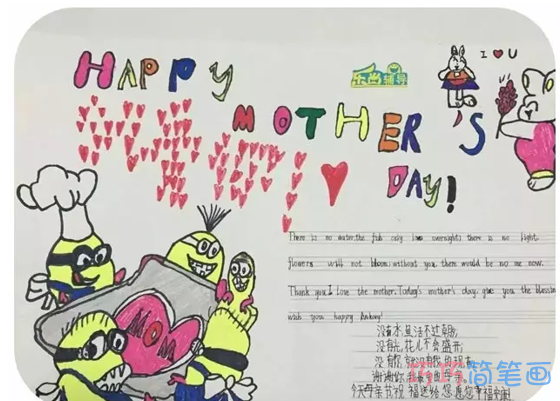 HAPPY
I ♥ U
MOTHER'S
DAY!
There is no water, the fish only live overnight, there is no light,
flowers will not bloom, without you, there would be no me now.
Thank you I love the mother. Today's mother's day, give you the blessin
wish you happy
MOM
没有水,鱼活不过
没有光,花儿不会盛开;
没有你
谢谢你
简笔画